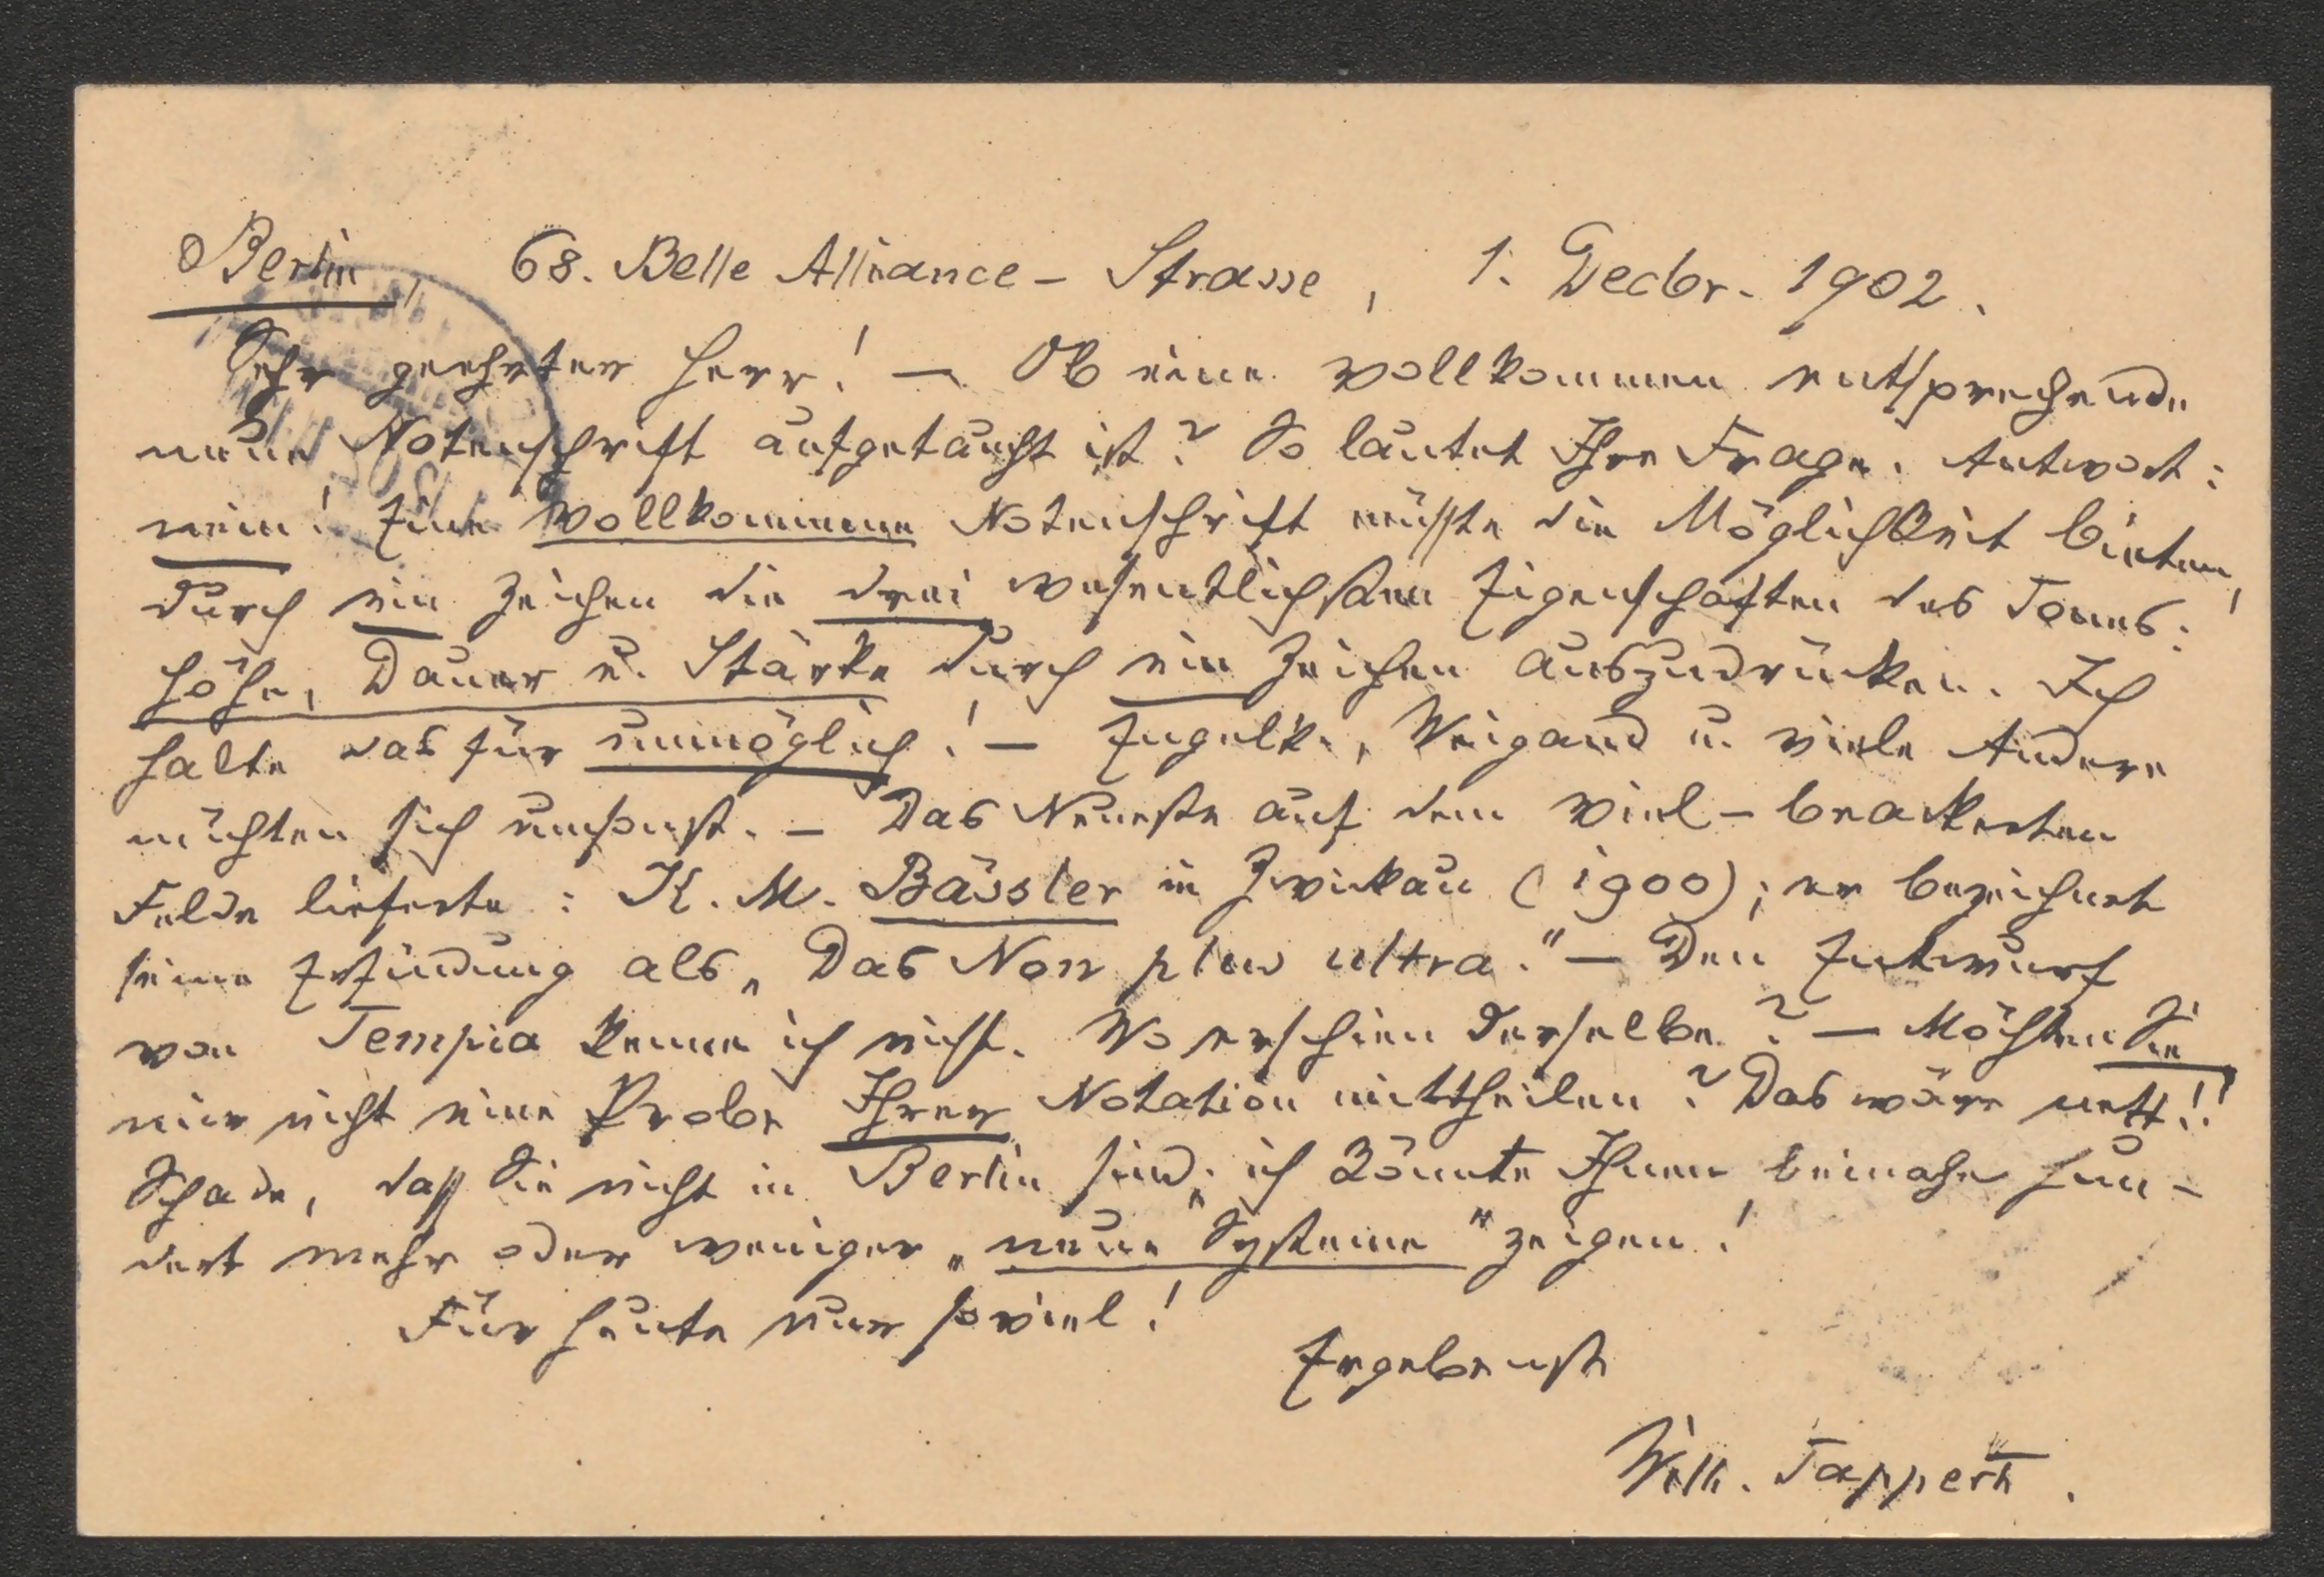 Berlin, 68. Belle Alliance-Strasse, 1. Decbr. 1902.
Sehr geehrter Herr! — Ob eine vollkommen entsprechende
neue Notenschrift aufgetaucht ist? So lautet Ihre Frage. Antwort:
nein! Eine vollkommene Notenschrift müsste die Möglichkeit bieten,
durch ein Zeichen die drei wesentlichsten Eigenschaften des Tones:
Höhe, Dauer u. Stärke durch ein Zeichen auszudrücken. Ich
halte das für unmöglich! — Engelke, Weigand u. viele Andere
mühten sich umsonst. — Das Neueste auf dem viel-beackerten
Felde lieferte: K. M. Bässler in Zwickau (1900); er bezeichnet
seine Erfindung als „Das Non plus ultra." — Den Entwurf
von Tempia kenne ich nicht. Wo erschien derselbe? — Möchten Sie
mir nicht eine Probe Ihrer Notation mittheilen? Das wäre nett!!
Schade, daß Sie nicht in Berlin sind; ich könnte Ihnen beinahe hun-
dert mehr oder weniger „neue Systeme" zeigen!
Für heute nur soviel!
Ergebenst
Wilh. Tappert.